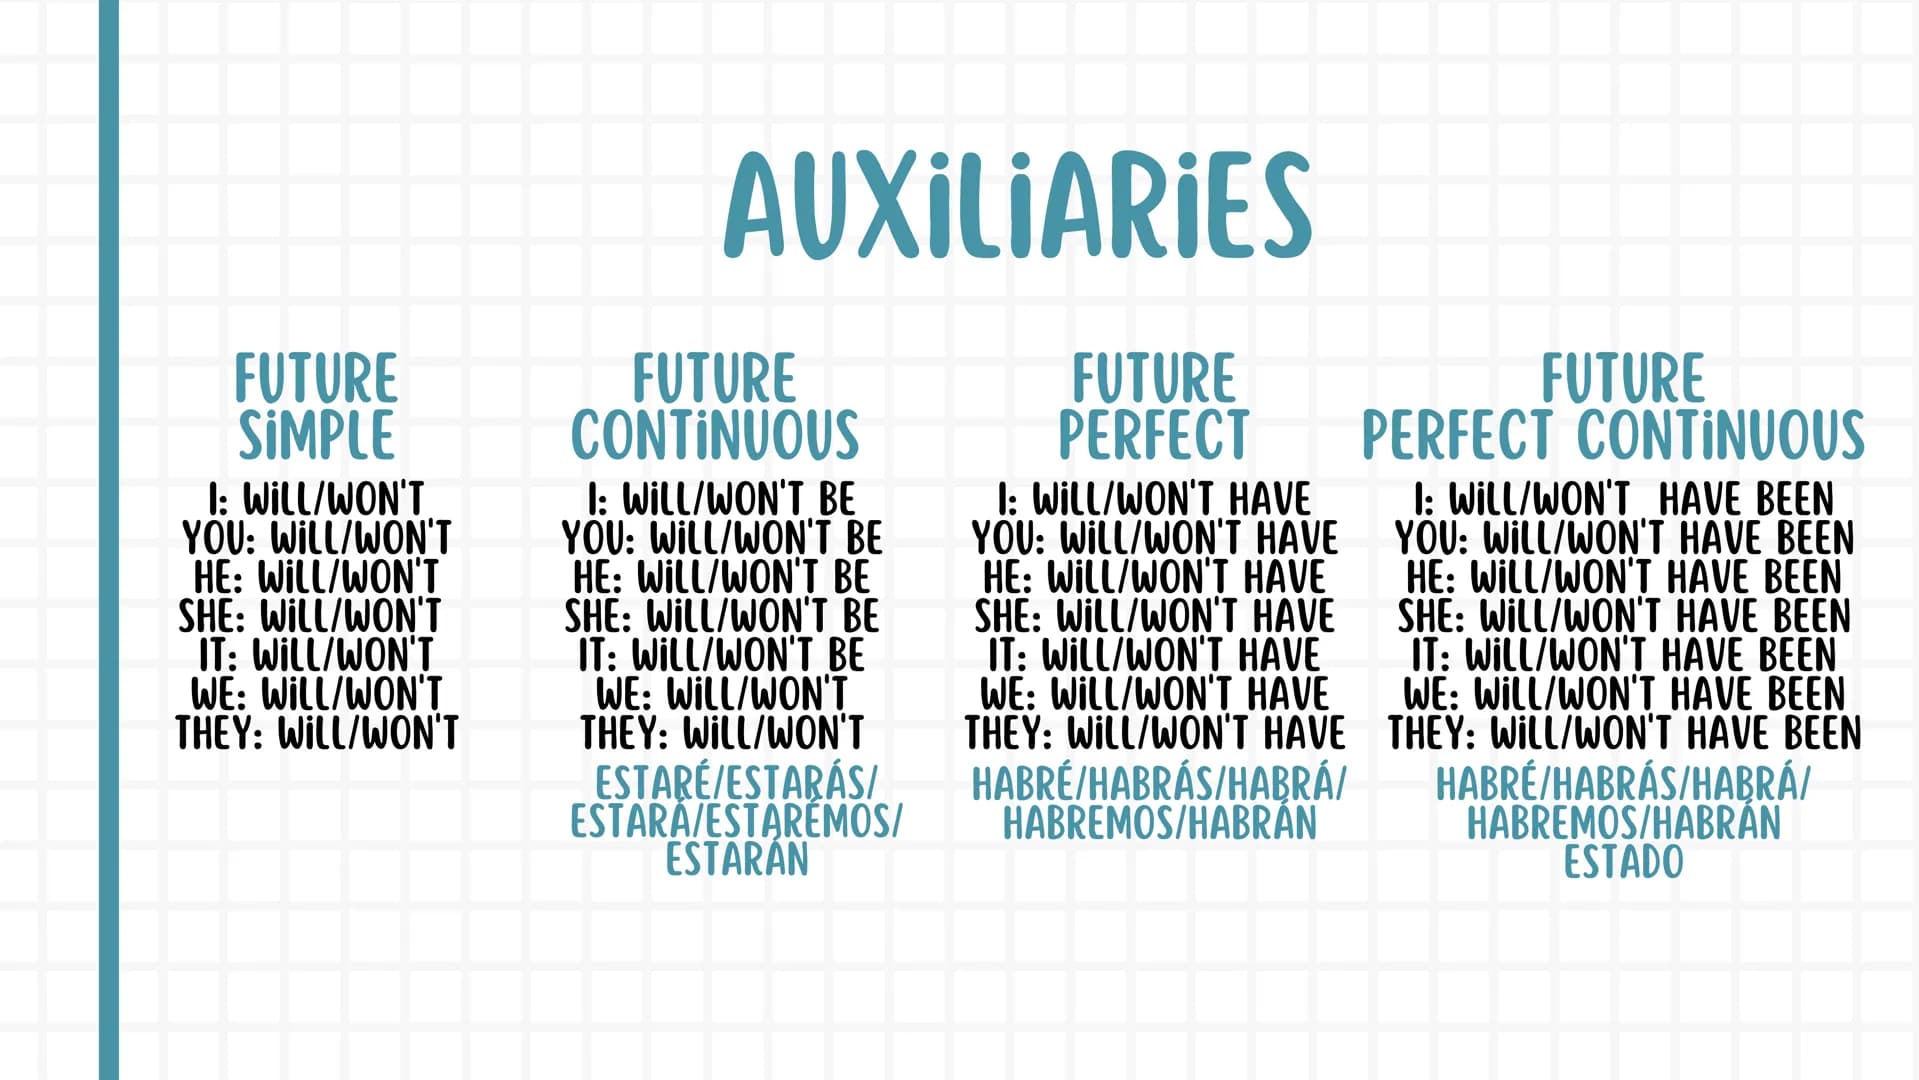 AUXiLiARiES
FUTURE
SiMPLE
I: WiLL/WON'T
YOU: WiLL/WON'T
HE: WiLL/WON'T
SHE: WiLL/WON'T
IT: WiLL/WON'T
WE: WiLL/WON'T
THEY: WiLL/WON'T
FUTURE
CONTiNUOUS
I: WiLL/WON'T BE
YOU: WiLL/WON'T BE
HE: WiLL/WON'T BE
SHE: WiLL/WON'T BE
IT: WiLL/WON'T BE
WE: WiLL/WON'T
THEY: WiLL/WON'T
ESTARÉ/ESTARÁS/
ESTARÁ/ESTARÉMOS/
ESTARÁN
FUTURE
PERFECT
I: WiLL/WON'T HAVE
YOU: WiLL/WON'T HAVE
HE: WiLL/WON'T HAVE
SHE: WiLL/WON'T HAVE
IT: WiLL/WON'T HAVE
WE: WiLL/WON'T HAVE
THEY: WiLL/WON'T HAVE
HABRÉ/HABRÁS/HABRÁ/
HABREMOS/HABRÁN
FUTURE
PERFECT CONTiNUOUS
I: WiLL/WON'T HAVE BEEN
YOU: WiLL/WON'T HAVE BEEN
HE: WiLL/WON'T HAVE BEEN
SHE: WiLL/WON'T HAVE BEEN
IT: WiLL/WON'T HAVE BEEN
WE: WiLL/WON'T HAVE BEEN
THEY: WiLL/WON'T HAVE BEEN
HABRÉ/HABRÁS/HABRÁ/
HABREMOS/HABRÁN
ESTADO